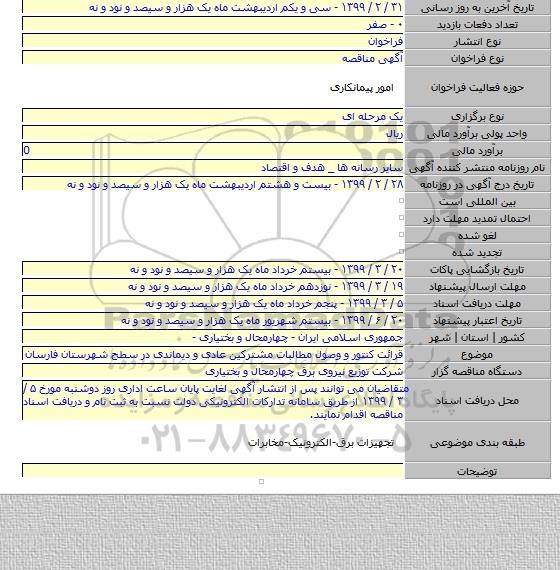 تاریخ آخرین به روز رسانی ۳۱ / ۲ / ۱۳۹۹ - سی و یکم اردیبهشت ماه یک هزار و سیصد و نود و نه
تعداد دفعات بازدید ۰ - صفر
نوع انتشار فراخوان
نوع فراخوان آگهی مناقصه
حوزه فعالیت فراخوان امور پیمانکاری
نوع برگزاری یک مرحله ای
واحد پولی برآورد مالی ریال
برآورد مالی 0
نام روزنامه منتشر کننده آگهی سایر رسانه ها _ هدف و اقتصاد
تاریخ درج آگهی در روزنامه ۲۸ / ۲ / ۱۳۹۹ - بیست و هشتم اردیبهشت ماه یک هزار و سیصد و نود و نه
بین المللی است
احتمال تمدید مهلت دارد
لغو شده
تجدید شده
تاریخ بازگشایی پاکات ۲۰ / ۳ / ۱۳۹۹ - بیستم خرداد ماه یک هزار و سیصد و نود و نه
مهلت ارسال پیشنهاد ۱۹ / ۳ / ۱۳۹۹ - نوزدهم خرداد ماه یک هزار و سیصد و نود و نه
مهلت دریافت اسناد ۵ / ۳ / ۱۳۹۹ - پنجم خرداد ماه یک هزار و سیصد و نود و نه
تاریخ اعتبار پیشنهاد ۲۰ / ۶ / ۱۳۹۹ - بیستم شهریور ماه یک هزار و سیصد و نود و نه
کشور | استان | شهر جمهوری اسلامی ایران - چهارمحال و بختیاری -
موضوع قرائت کنتور و وصول مطالبات مشترکین عادی و دیماندی در سطح شهرستان فارسان
دستگاه مناقصه گزار شرکت توزیع نیروی برق چهارمحال و بختیاری
محل دریافت اسناد متقاضیان می توانند پس از انتشار آگهی لغایت پایان ساعت اداری روز دوشنبه مورخ ۵ /
۳ / ۱۳۹۹ از طریق سامانه تدارکات الکترونیکی دولت نسبت به ثبت نام و دریافت اسناد
مناقصه اقدام نمایند.
طبقه بندی موضوعی تجهیزات برق-الکترونیک-مخابرات
توضیحات
۰۲۱-۸۸۳۴۹۶۷۰-۵